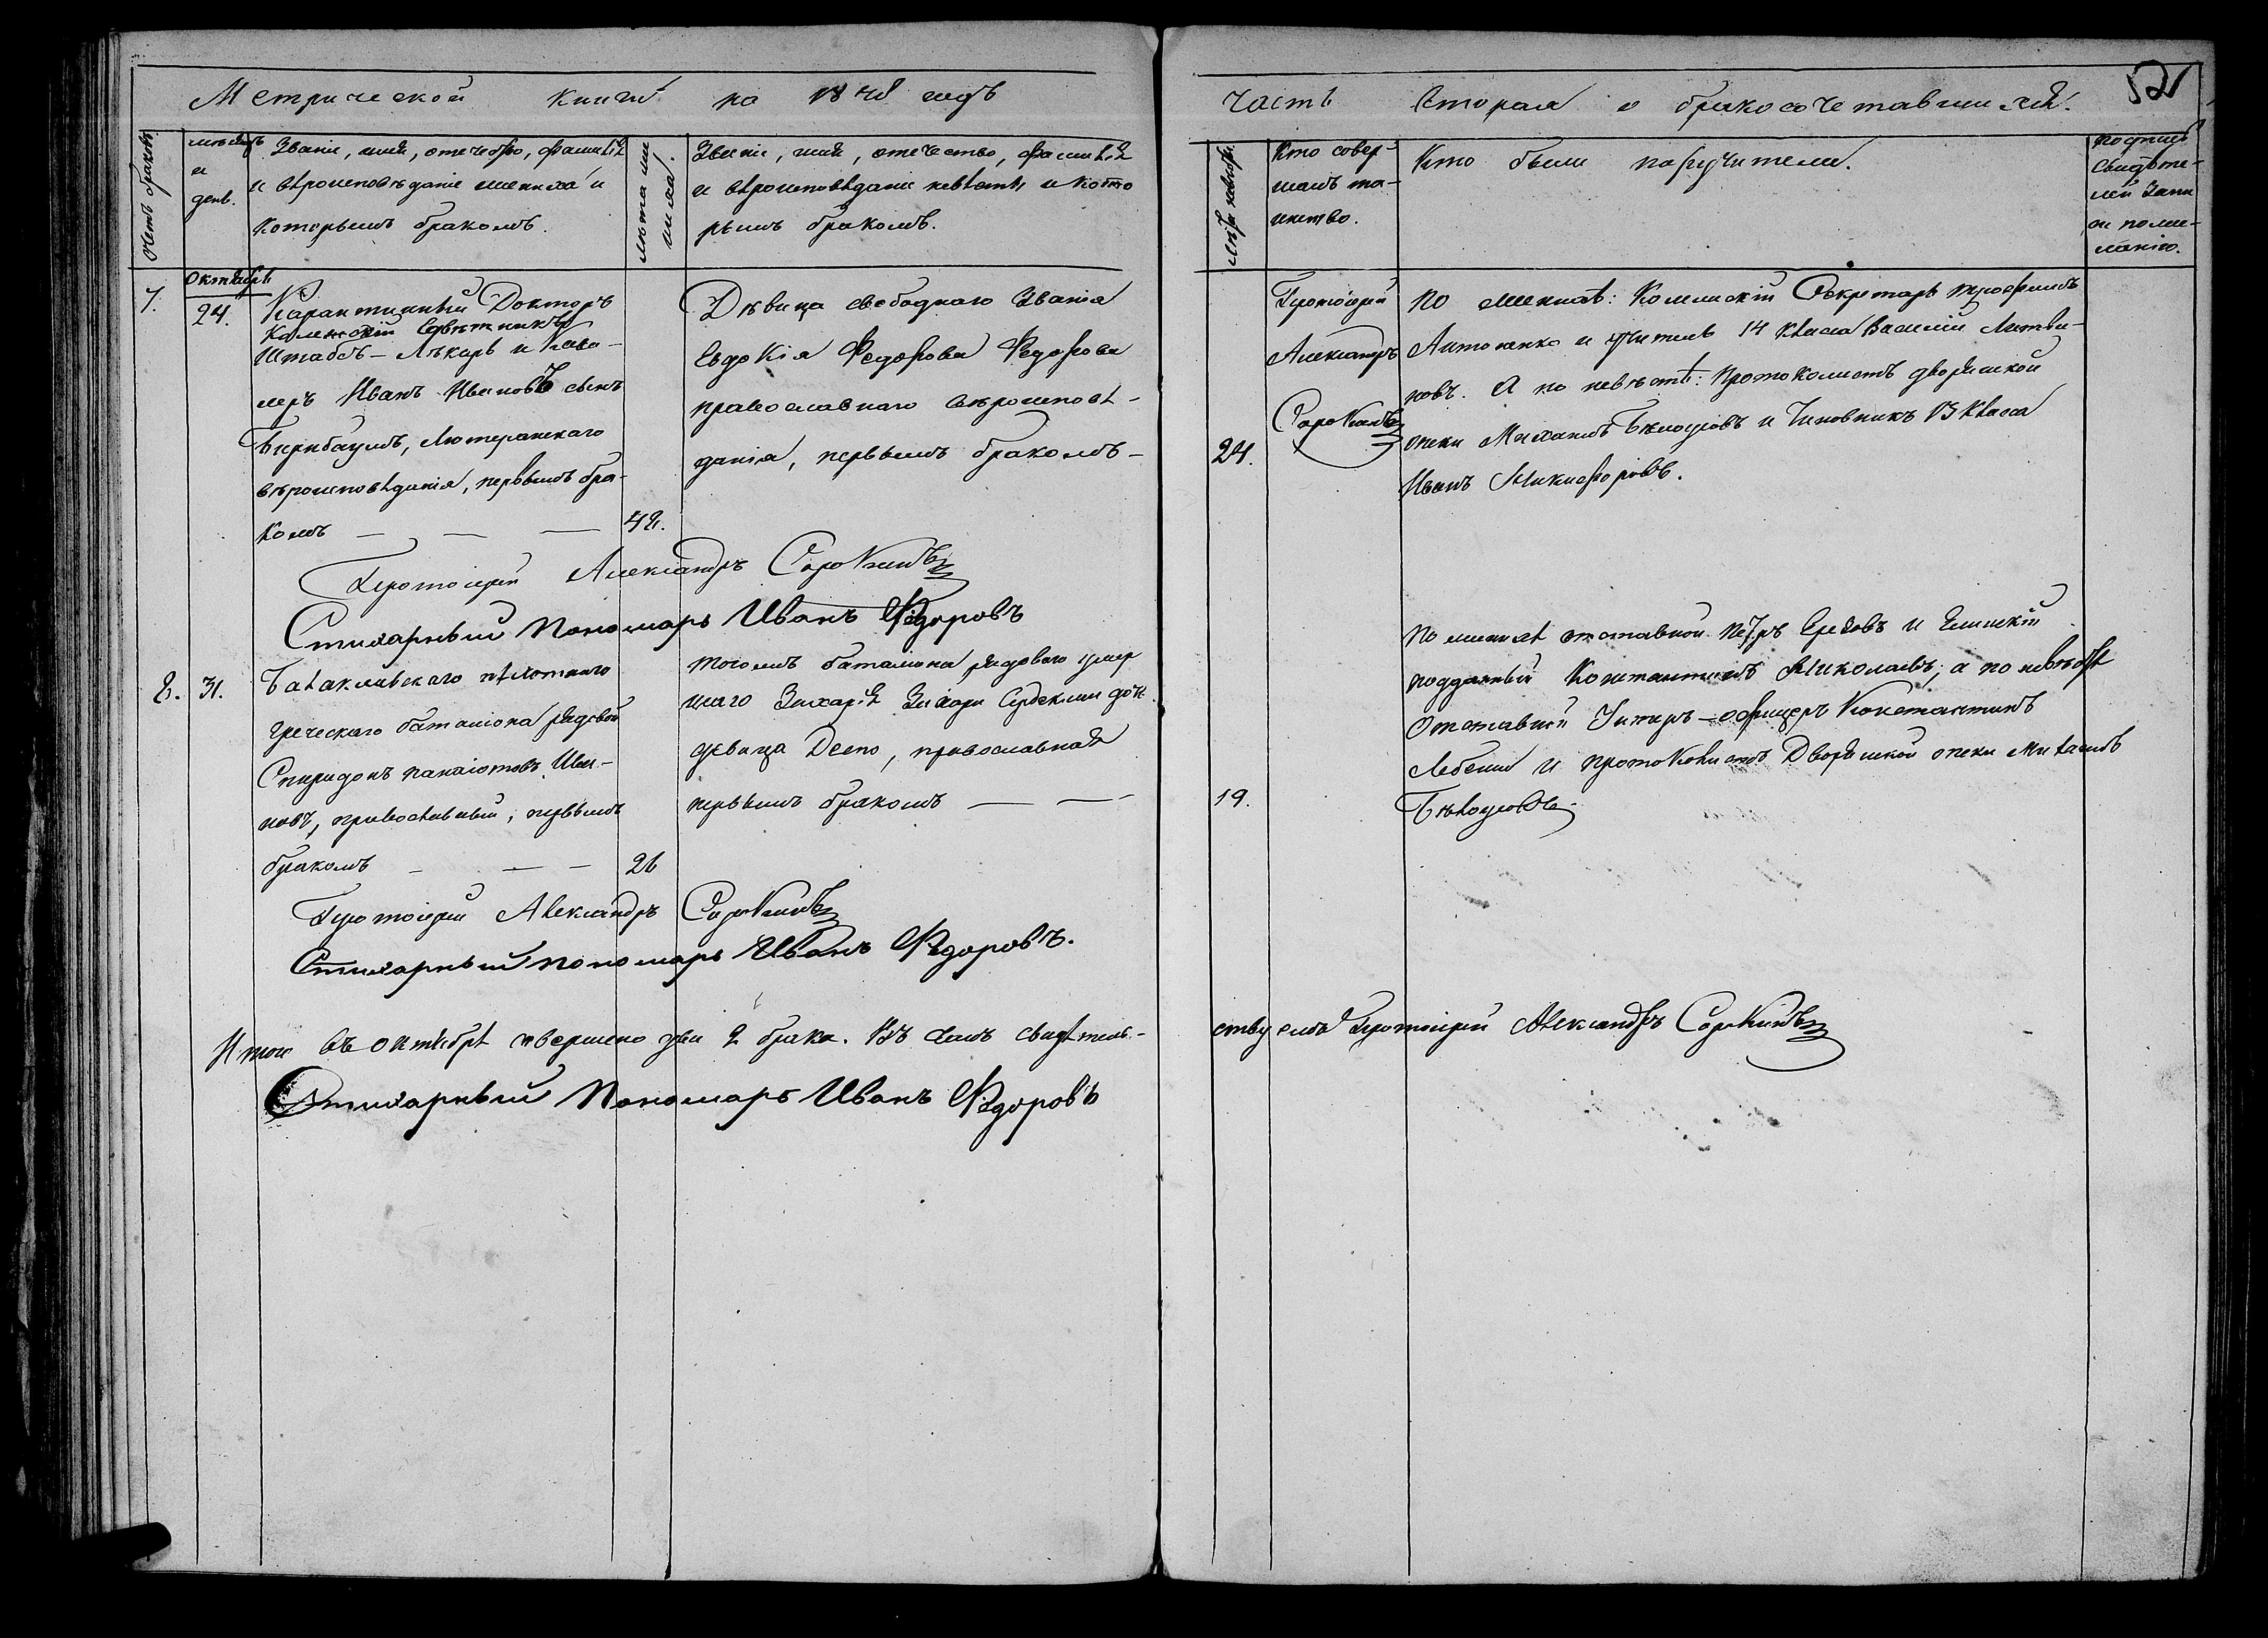 Метрической книги на 1848 годъ
часть вторая о бракосочетавшихся.
52
Счетъ браковъ.
мѣсяцъ
и
день.
Званіе, имя, отечество, фамилія
и вѣроисповѣданіе жениха и
которымъ бракомъ.
лѣта жениха.
Званіе, имя, отечество, фамилія
и вѣроисповѣданіе невѣсты и кото
рымъ бракомъ.
лѣта невѣсты.
Кто совер-
шалъ та-
инство.
Кто были поручители.
подпись
свидѣте-
лей запи
си по же-
ланію.
7.
Октября
24.
Карантинный Докторъ
Коллежскій Совѣтникъ
Штабъ-Лѣкарь и Кава-
леръ Иванъ Ивановъ сынъ
Бирнбаумъ, Лютеранскаго
вѣроисповѣданія, первымъ бра-
комъ — — —
42.
Дѣвица свободнаго званія
Евдокія Федорова Федорова
православнаго вѣроисповѣ-
данія, первымъ бракомъ —
24.
Протоіерей
Александръ
Сорокинъ
по женихѣ: Коллежскій Секретарь Трофимъ
Антоненко и учитель 14 класса Василій Литви-
новъ. А по невѣстѣ: Протоколистъ дворянской
опеки Михаилъ Бѣлоусовъ и Чиновникъ 13 класса
Иванъ Никифоровъ.
Протоіерей Александръ Сорокинъ
Стихарный Пономарь Иванъ Федоровъ
8.
31.
Балаклавскаго пѣхотнаго
греческаго баталіона рядовой
Спиридонъ Панаіотовъ Ива-
новъ, православный, первымъ
бракомъ — — —
26
тогожъ баталіона рядоваго умер
шаго Захарія дочь
дѣвица Деспо, православная
первымъ бракомъ — —
19.
По женихѣ отставной Петръ и Еллинскій
подданный Константинъ Николаевъ; а по невѣстѣ
Отставной Унтеръ-офицеръ Константинъ
и протоколистъ Дворянской опеки Михаилъ
Бѣлоусовъ.
Протоіерей Александръ Сорокинъ
Стихарный пономарь Иванъ Федоровъ.
Итого въ октябрѣ совершено два 2 брака. Въ чемъ свидѣтель-
ствуемъ Протоіерей Александръ Сорокинъ
Стихарный Пономарь Иванъ Федоровъ